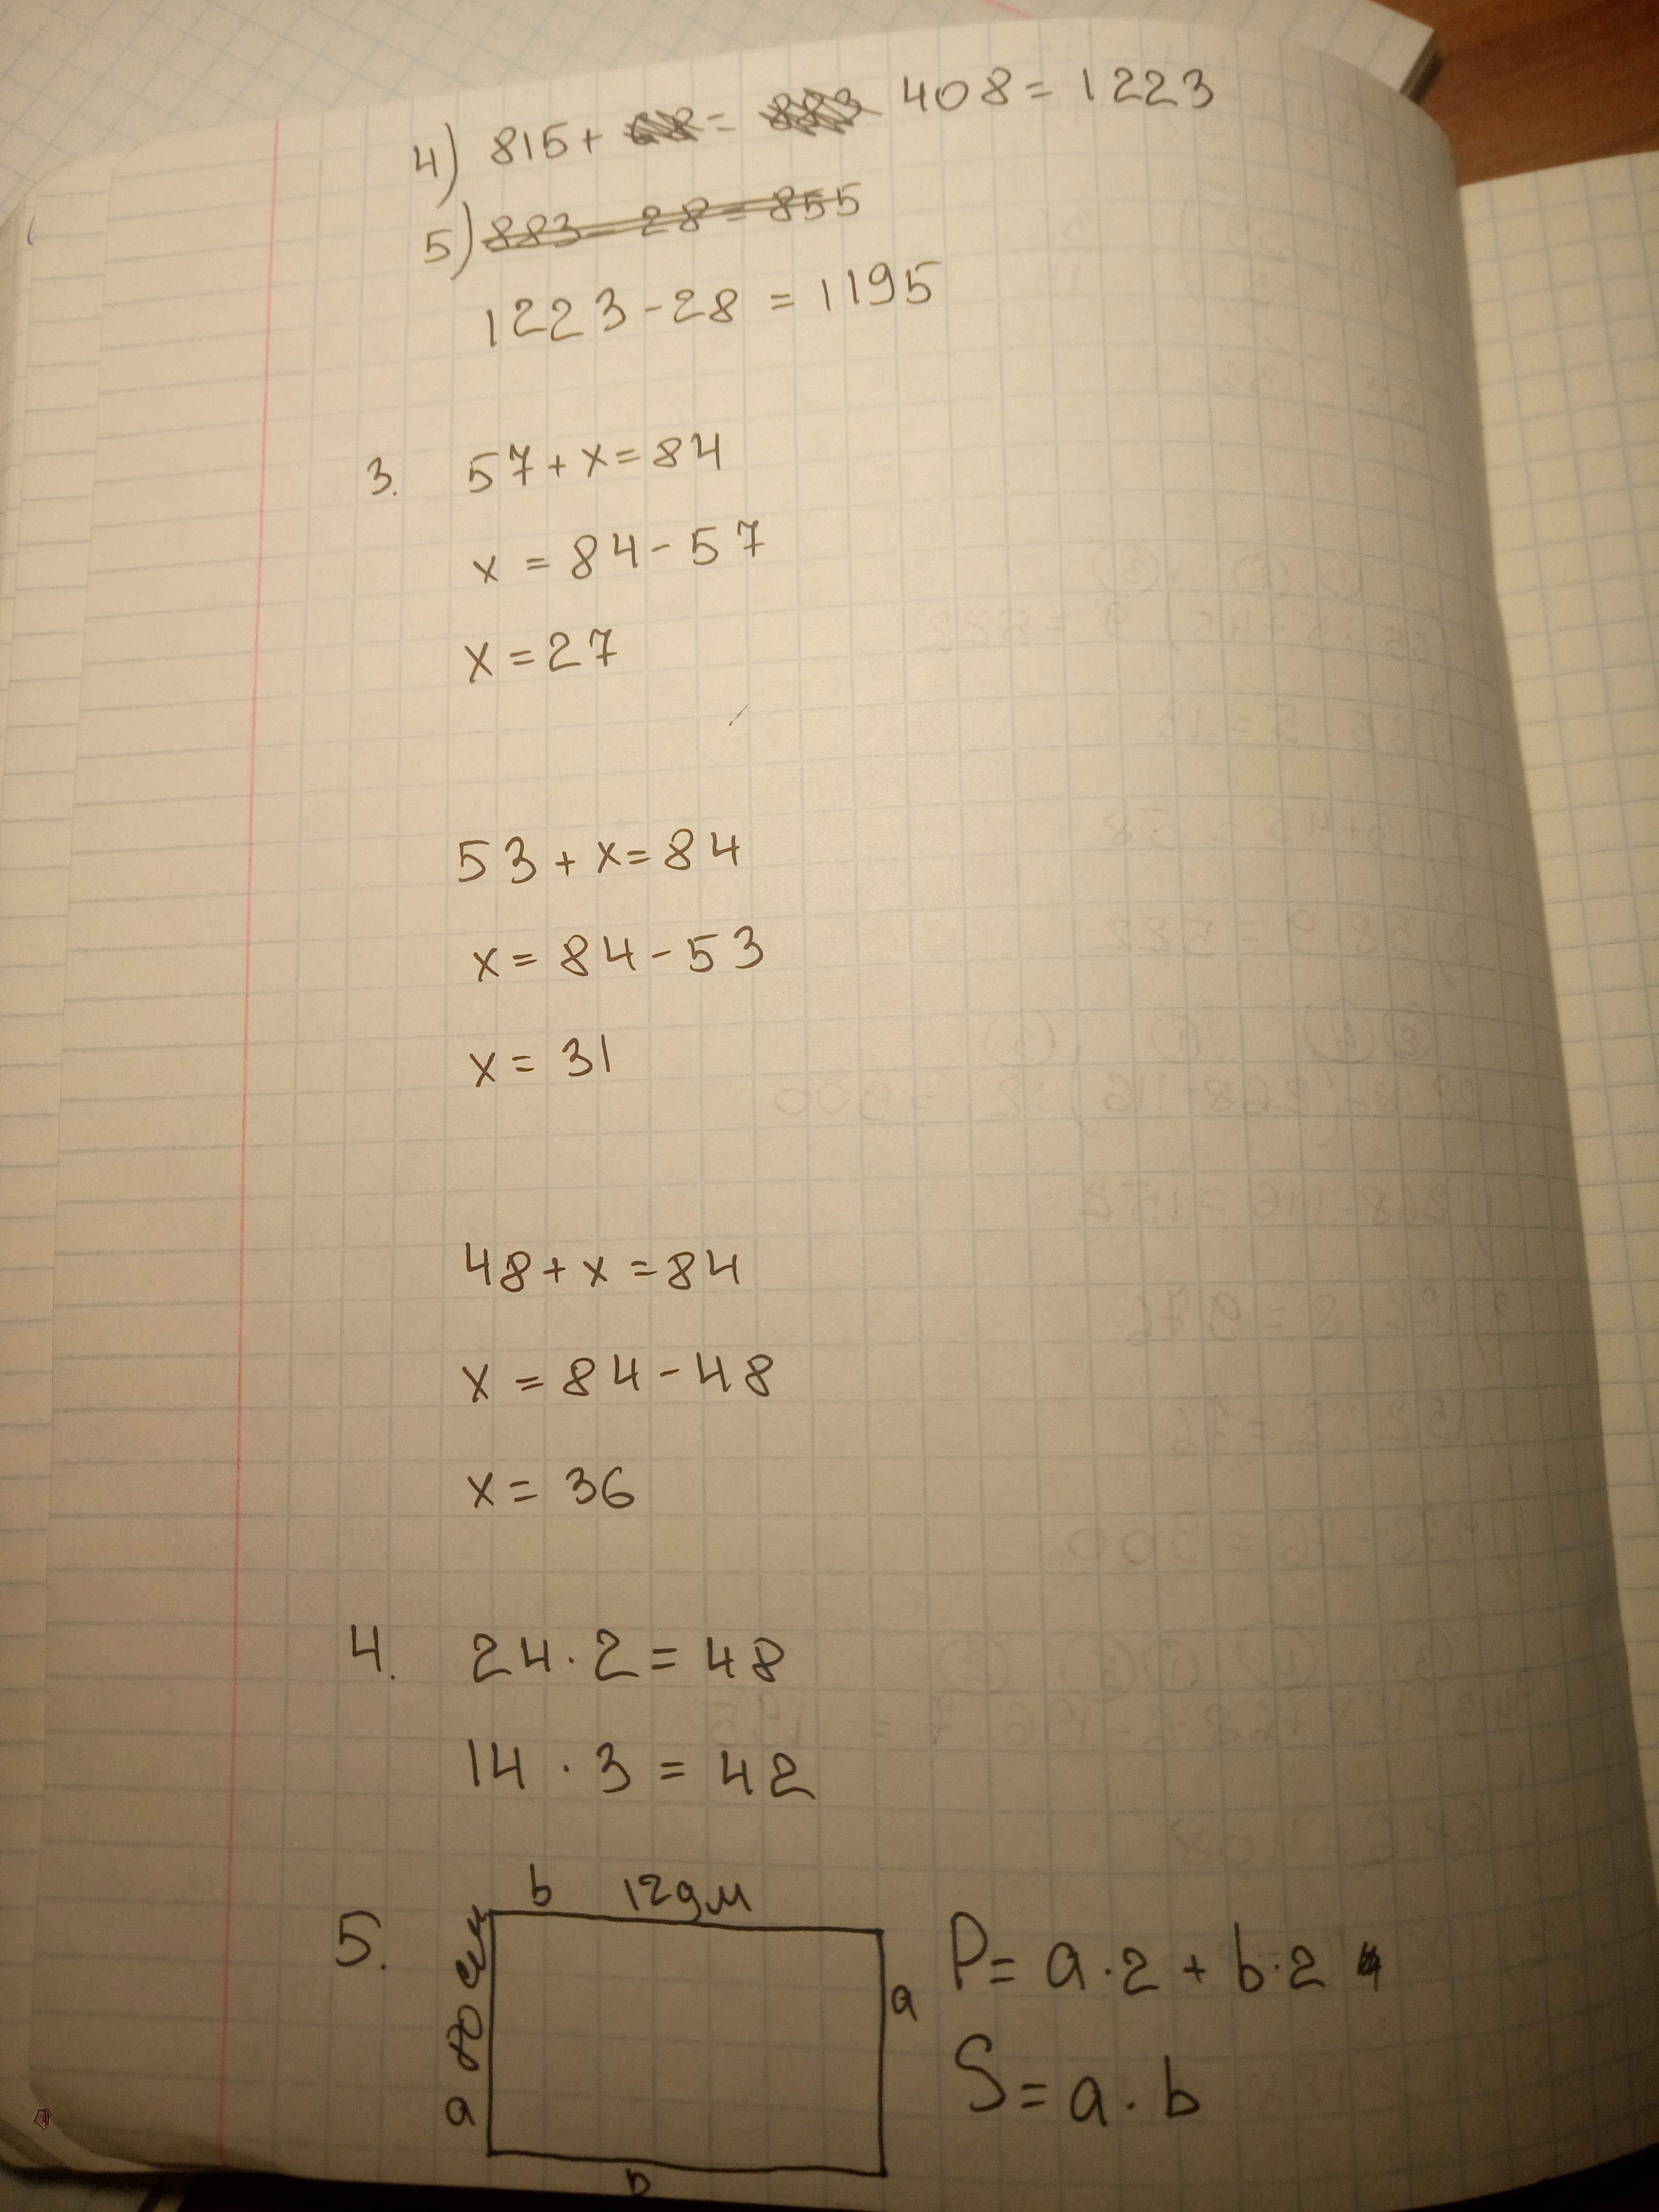 4) 815 + = 408 = 1223
5) 883 - 28 = 855
1223 - 28 = 1195
3. 57 + x = 84
x = 84 - 57
x = 27
53 + x = 84
x = 84 - 53
x = 31
48 + x = 84
x = 84 - 48
x = 36
4. 24 · 2 = 48
14 · 3 = 42
b 12дм
5. a 70 см
a
b
P = a · 2 + b · 2
S = a · b